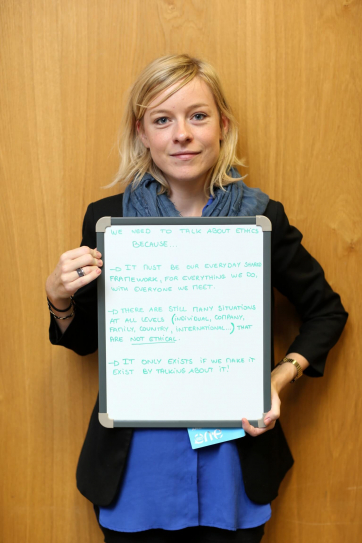 WE NEED TO TALK ABOUT ETHICS
BECAUSE...
→ IT MUST BE OUR EVERYDAY SHARED
FRAMEWORK, FOR EVERYTHING WE DO,
WITH EVERYONE WE MEET.
→ THERE ARE STILL MANY SITUATIONS
AT ALL LEVELS (INDIVIDUAL, COMPANY,
FAMILY, COUNTRY, INTERNATIONAL...) THAT
ARE NOT ETHICAL.
→ IT ONLY EXISTS IF WE MAKE IT
EXIST BY TALKING ABOUT IT!